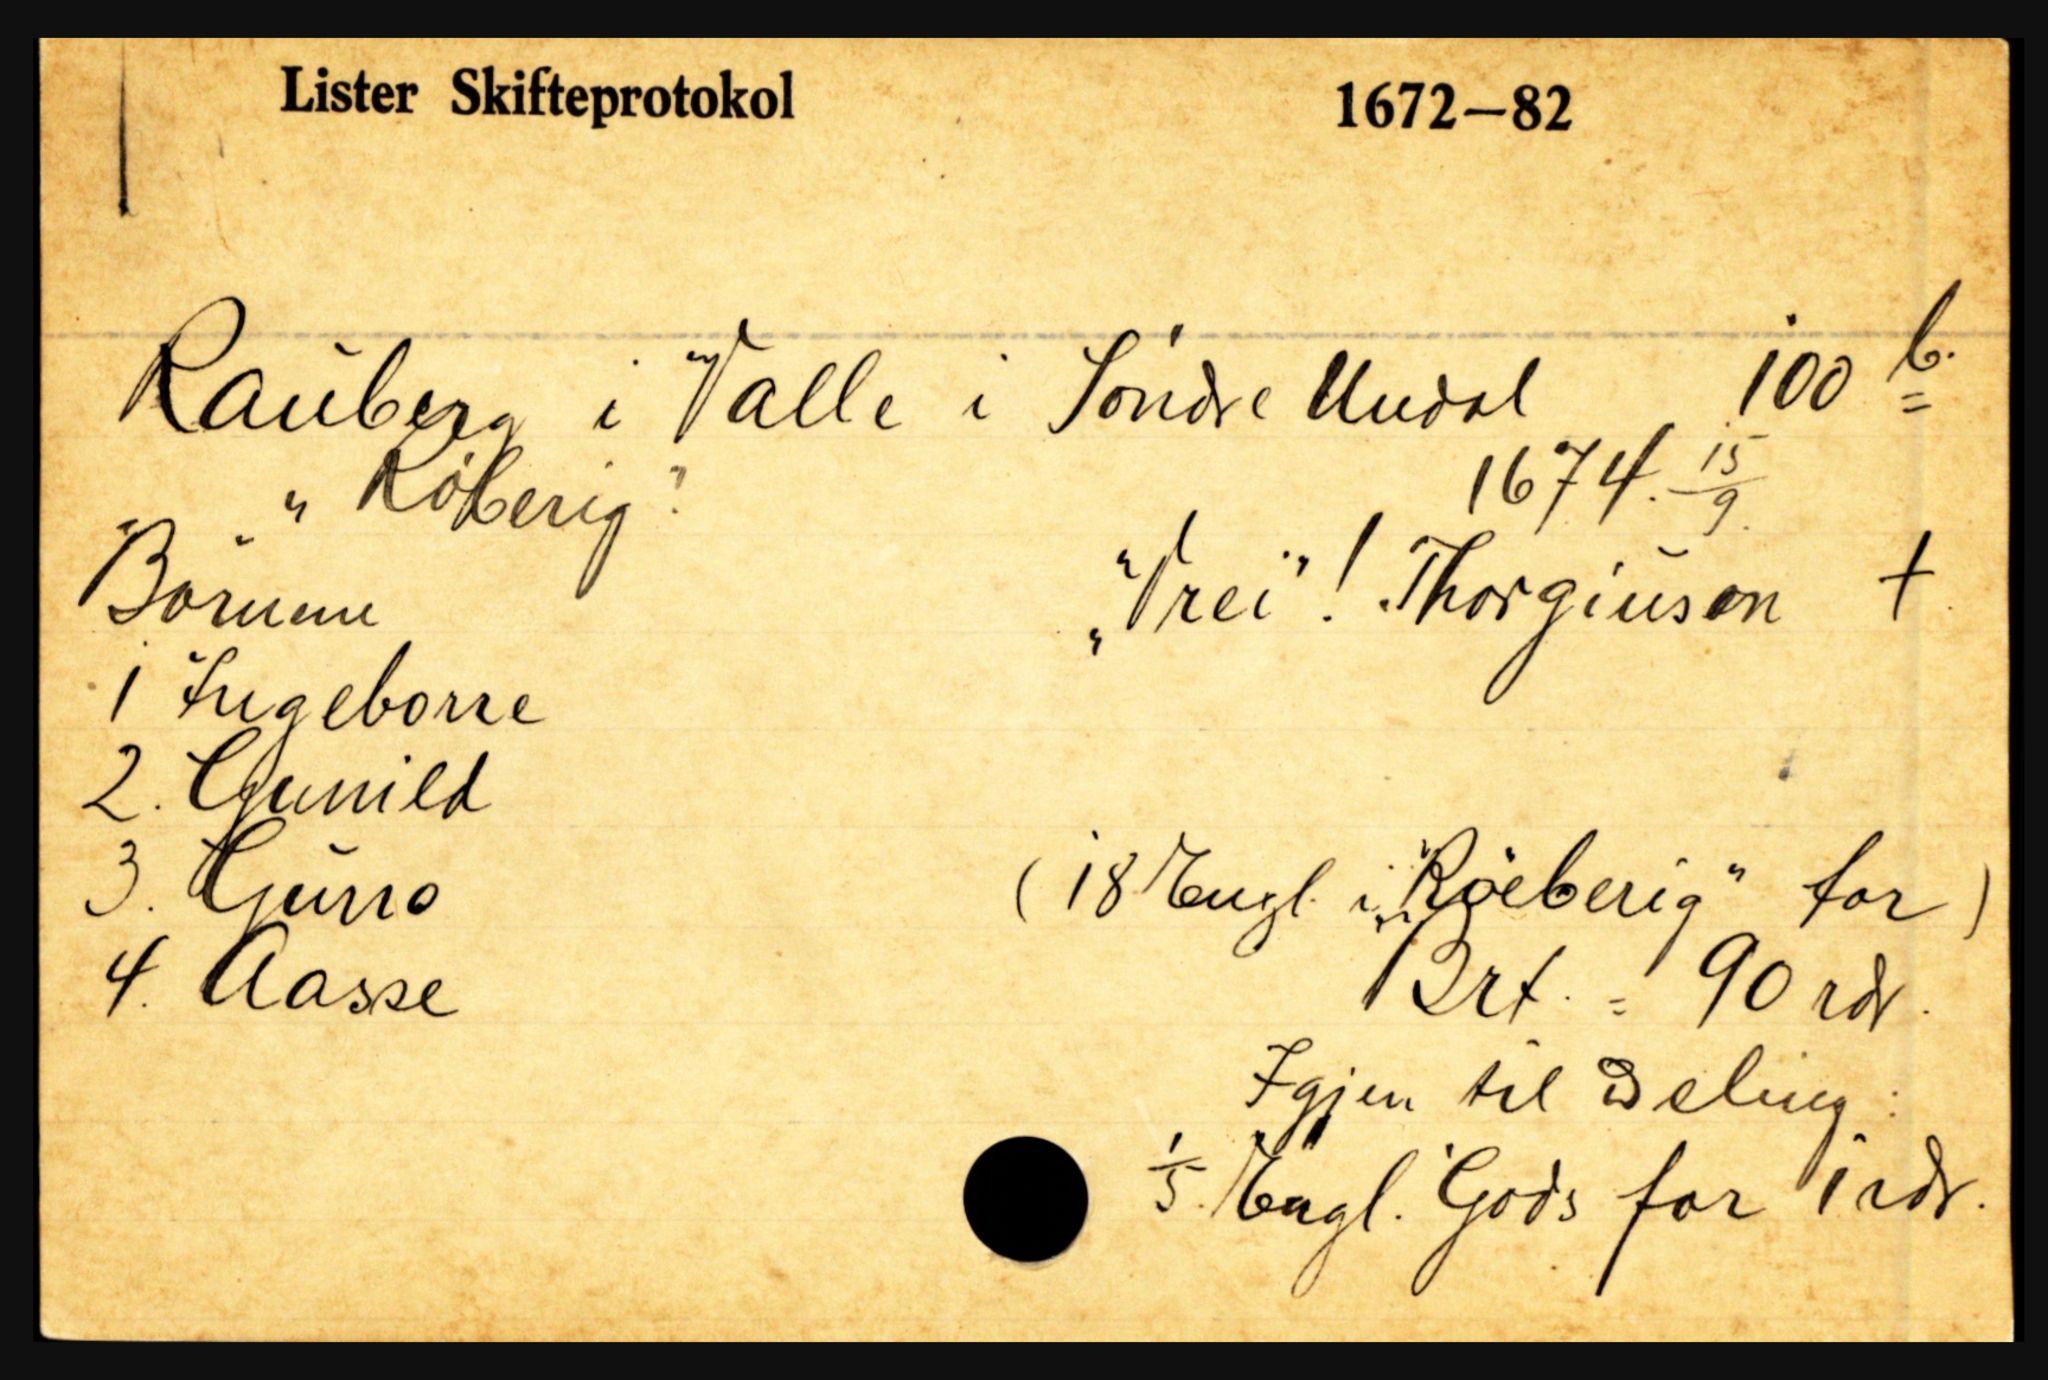 Lister Skifteprotokol 1672–82
Rauberg i Valle i Söndre Undal 100 b.
„Röberig" 1674. 15/9.
Börnene „Vrei"! Thorgiuson †
1 Ingeborre
2. Gunild
3. Gurro (18 Engl. i „Röeberig" for)
4. Aasse Brt. = 90 rdr.
Igjen til Deling:
1/5 Engl. Gods for 1 rdr.